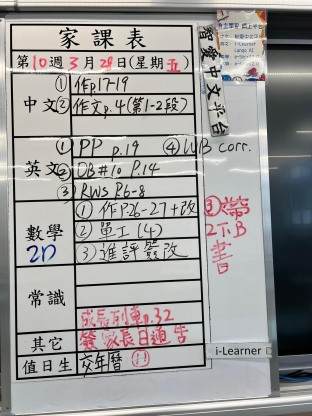 家課表
第10週3月28日(星期五)
中文
① 作p.17-19
② 作文p.4(第1-2段)
英文
① PP p.19 ④ WB corr.
② DB#10 P.14
③ RWS P.6-8
數學
① 作P.26-27+改
2) 單工(4)
3) 進評簽改
③ 帶
2下B
書
常識
成長列車p.32
其它
簽家長日通告
值日生
交年曆 (11)
智愛中文平台
i-Learner
i-Learner